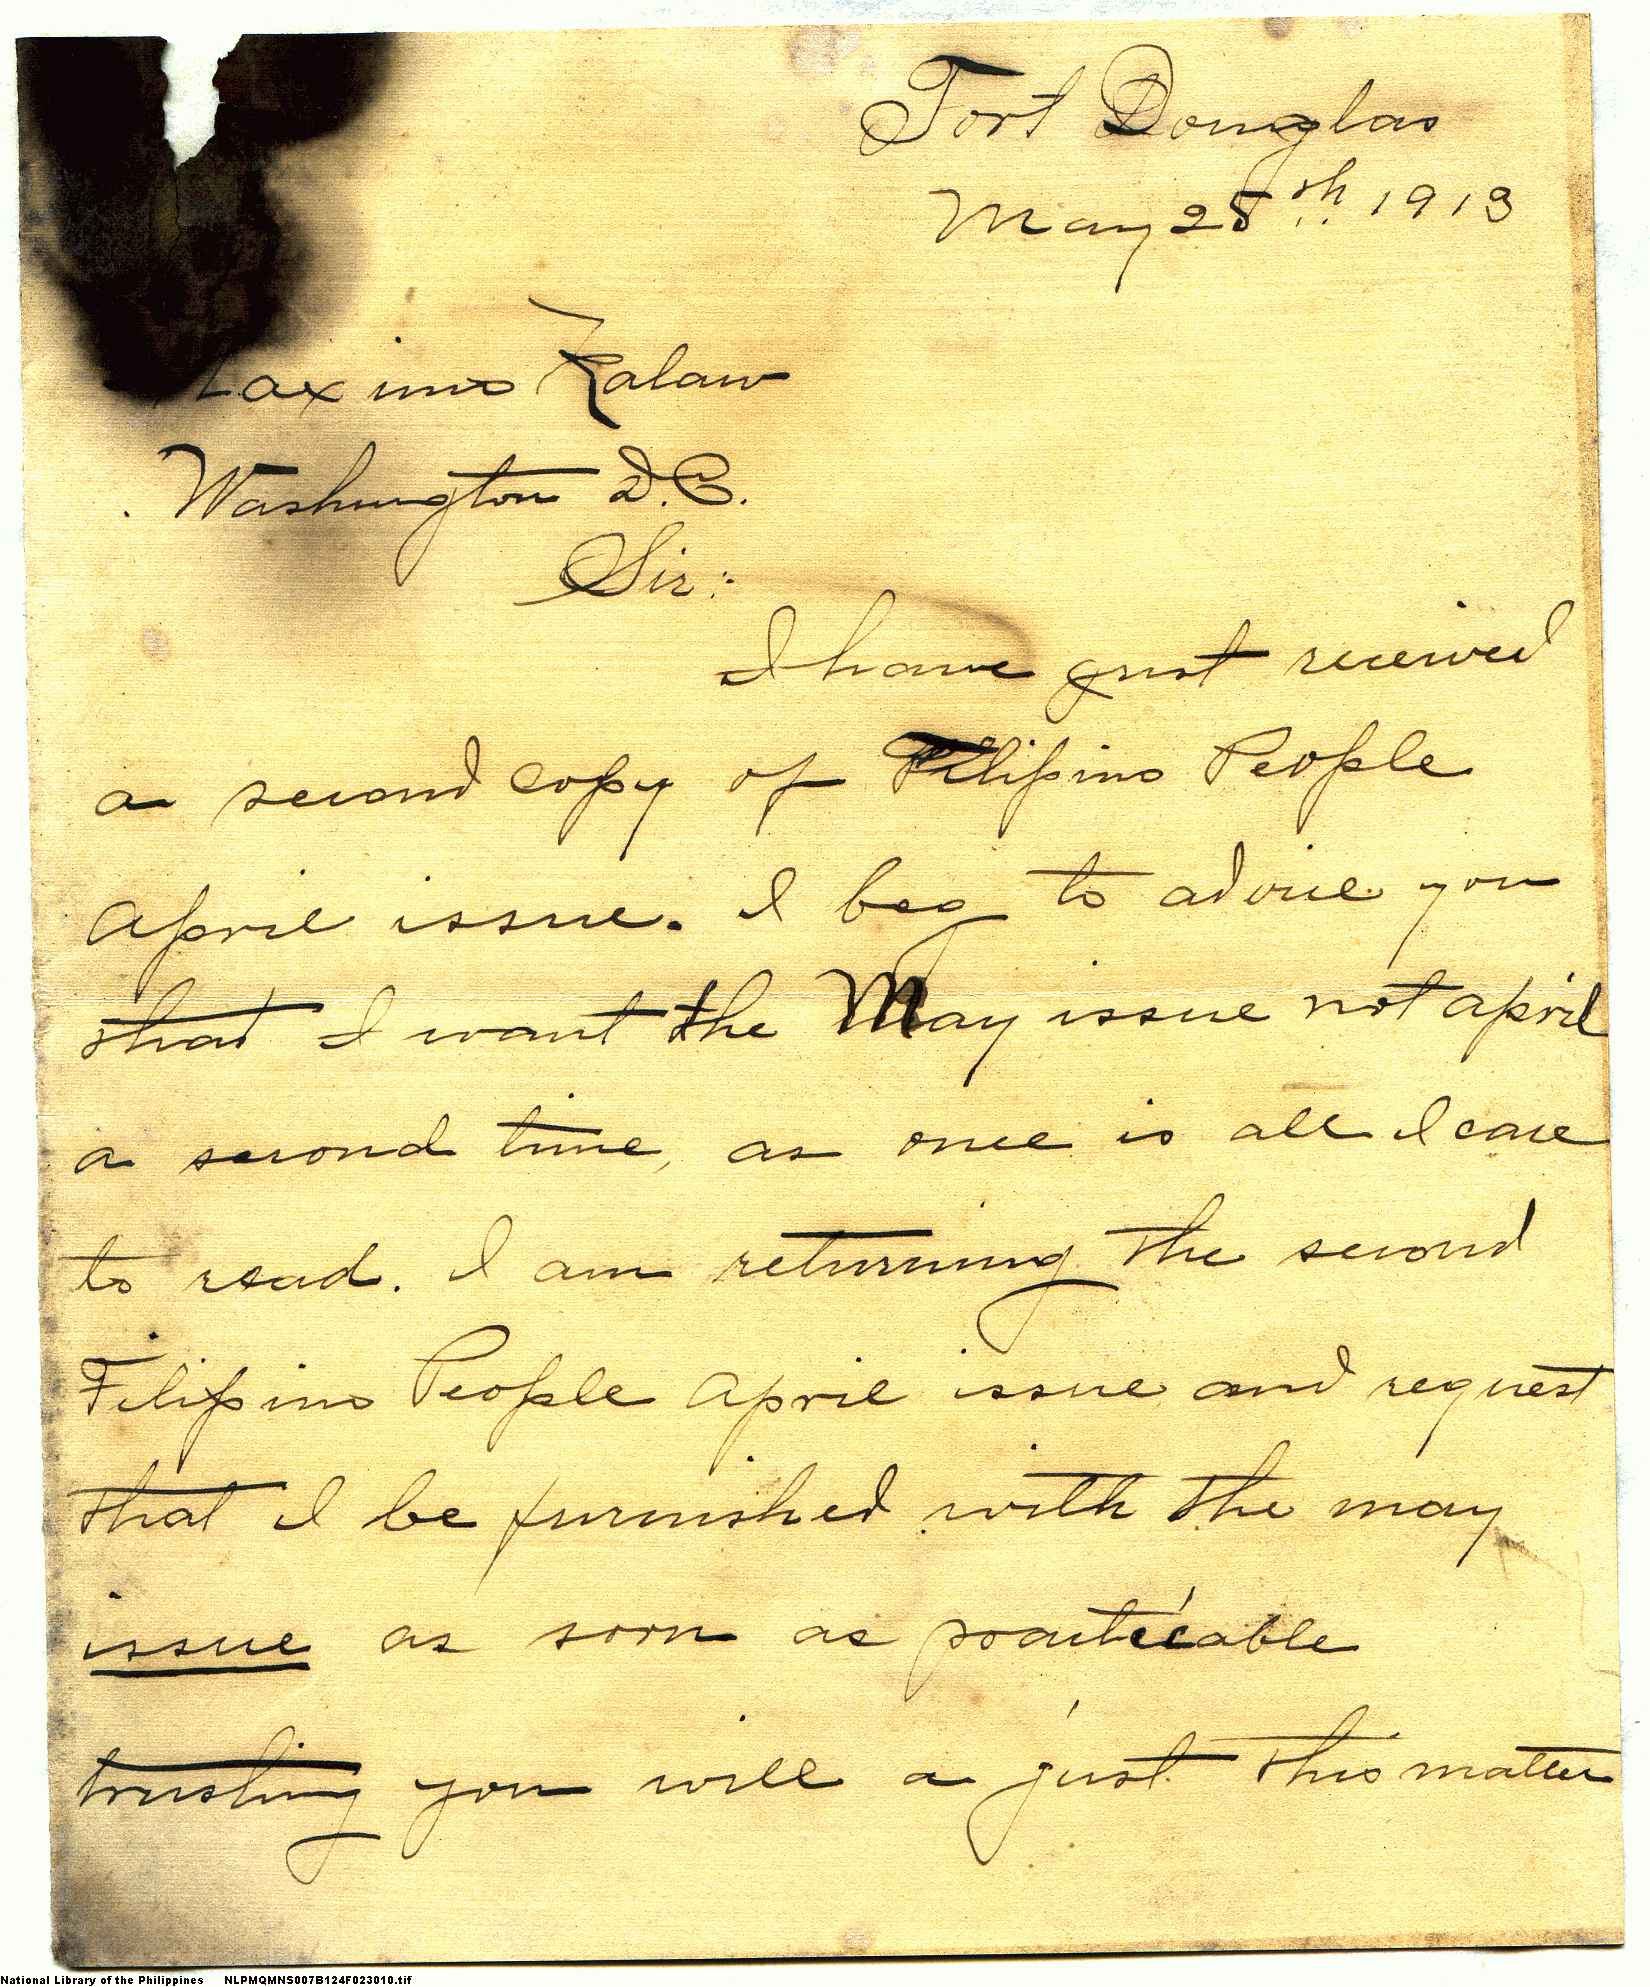 Fort Douglas
May 28th. 1913
Maximo Kalaw
Washington D.C.
Sir:
I have just received
a second copy of Filipino People
April issue. I beg to advice you
that I want the May issue not april
a second time, as once is all I care
to read. I am returning the second
Filipino People April issue and request
that I be furnished with the may
issue as soon as practicable
trusting you will a just this matter
National Library of the Philippines NLPMQMNS007B124F023010.tif